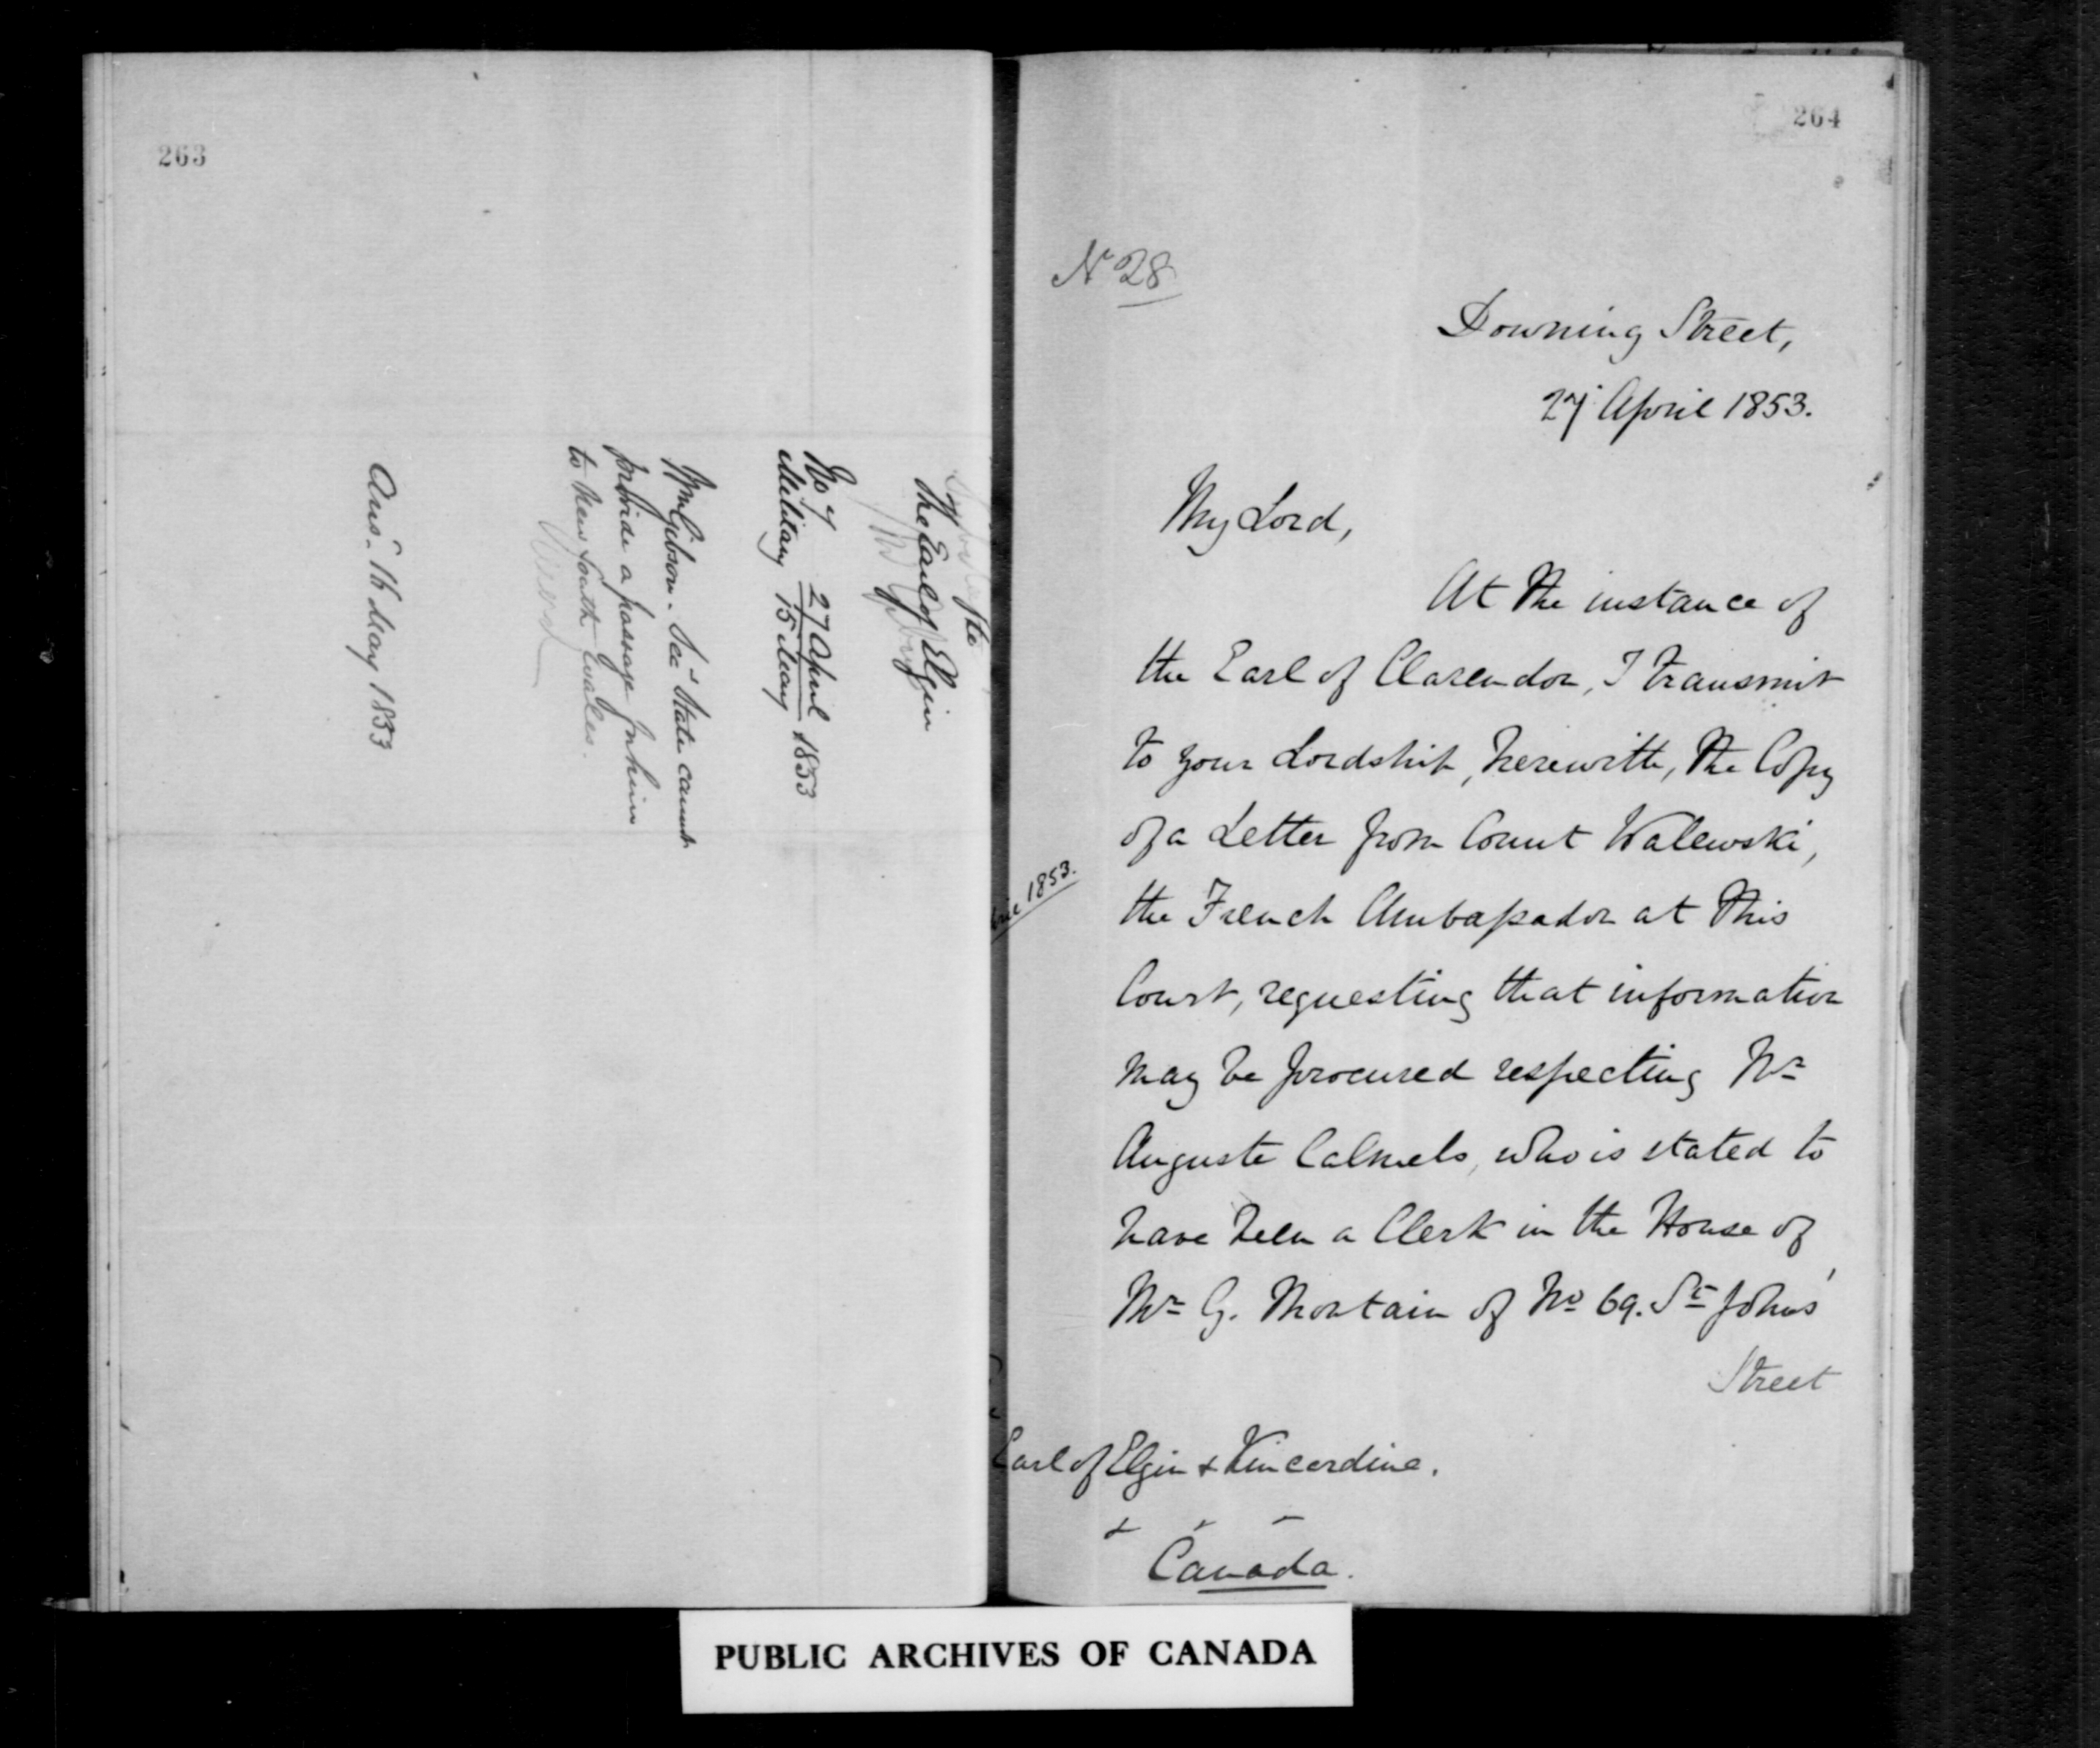 263
The
The Earl of Elgin
No 7 27 April
Military 15 May 1853
Wm Gibson. Secy State cannot
provide a passage for him
to New South Wales.
Ansd 16 May 1853
264
No 28
Downing Street,
27 April 1853.
My Lord,
At the instance of
the Earl of Clarendon, I transmit
to your Lordship, herewith, the Copy
of a Letter from Count Walewski,
1853.
the French Ambassador at this
Court, requesting that information
may be procured respecting Mr
Auguste Calmels, who is stated to
have been a Clerk in the House of
Mr G. Mortain of No 69. St Johns'
Street
Earl of Elgin & Kincardine.
&
Canada.
PUBLIC ARCHIVES OF CANADA